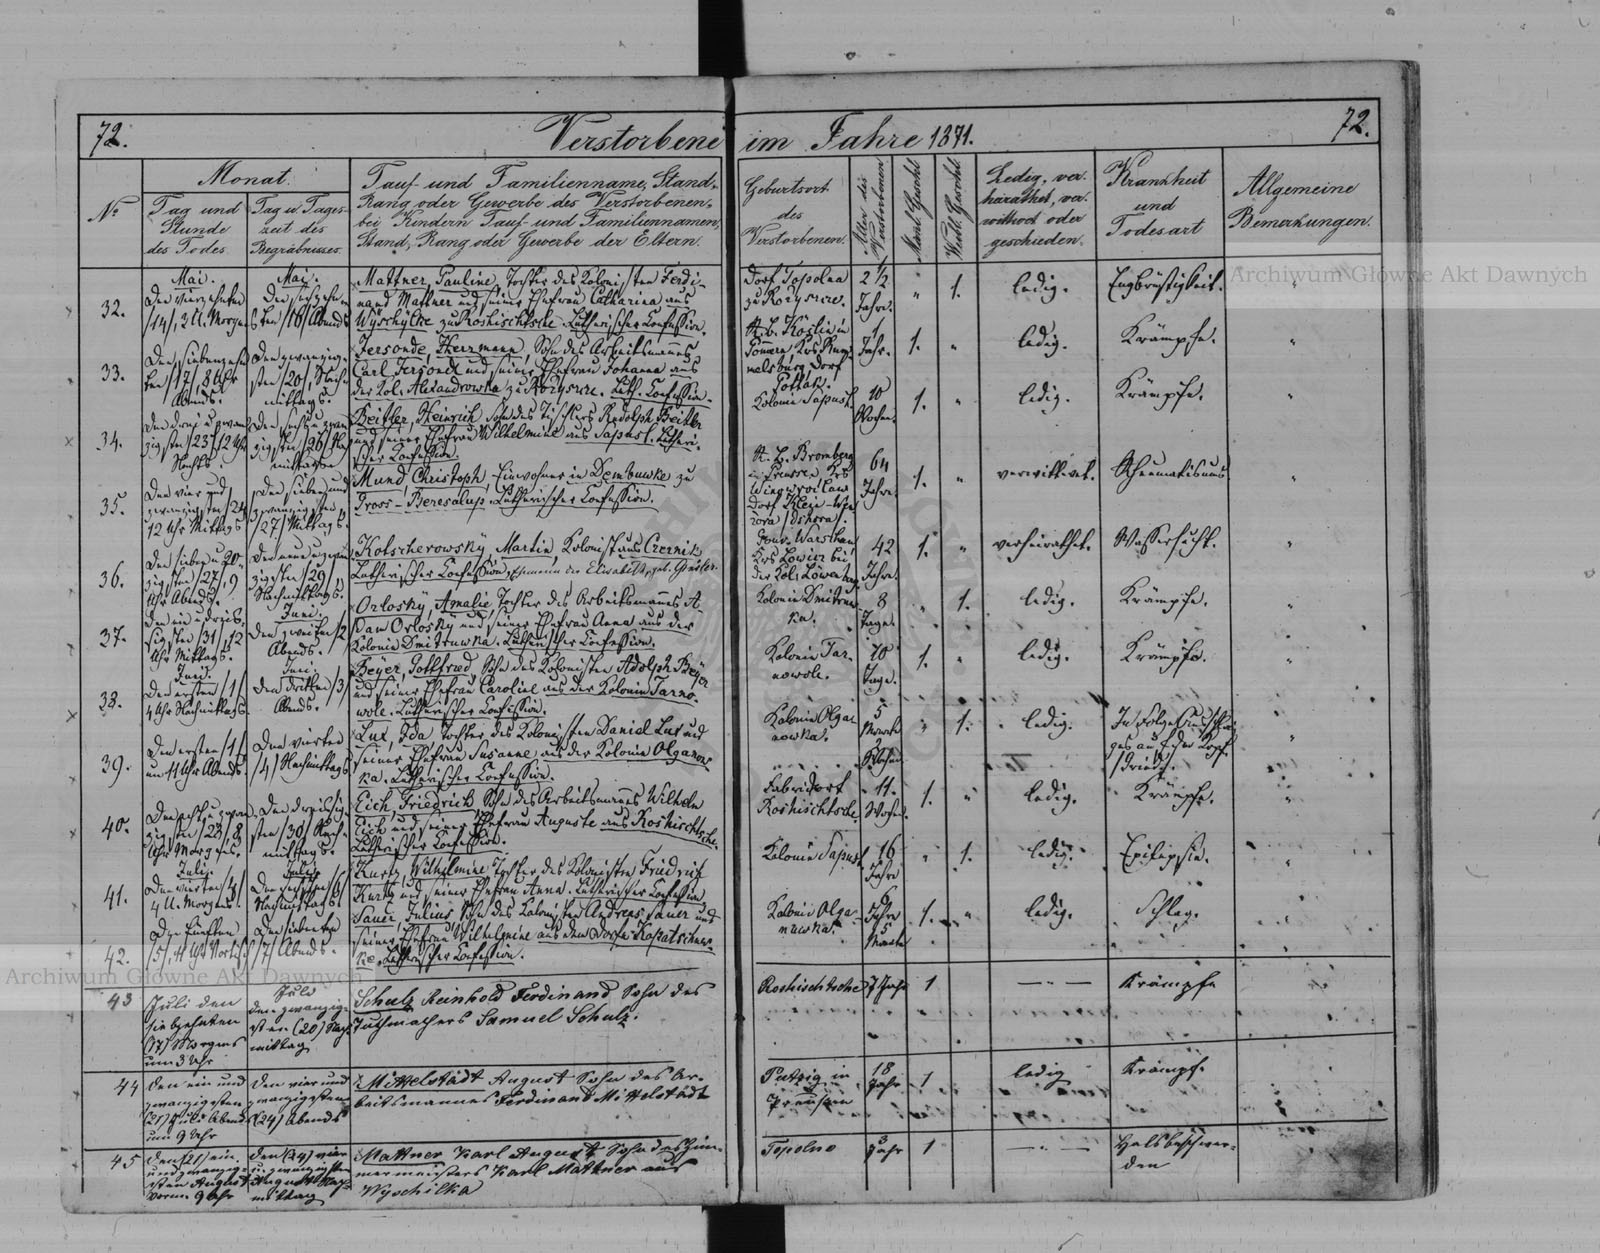 72.
Verstorbene im Jahre 1871.
72.
Nº
Monat.
Tag und
Stunde
des Todes.
Tag u. Tages-
zeit des
Begräbnisses.
Tauf- und Familienname, Stand,
Rang oder Gewerbe des Verstorbenen,
bei Kindern Tauf- und Familiennamen,
Stand, Rang oder Gewerbe der Eltern.
Geburtsort
des
Verstorbenen.
Alter des
Verstorbenen
Mänl. Geschl.
Weibl. Geschl.
Ledig, ver-
heirathet, ver-
wittwet oder
geschieden.
Krankheit
und
Todesart
Allgemeine
Bemerkungen.
32.
Mai.
Den vierzehnten
/14/, 3 U. Morgens
Mai.
Den sechzehn-
ten /16/ Abends
Mattner, Pauline, Tochter des Kolonisten Ferdi-
nand Mattner und seiner Ehefrau Catharina aus
Wyschylke zu Roshischtsche. Lutherischer Confession.
Dorf Topolna
zu Rozyszcze.
2 1/2
Jahre.
"
1.
ledig.
Engbrüstigkeit.
"
33.
Den siebenzehn-
ten /17/, 8 Uhr
Abends.
Den zwanzig-
sten /20/, Nach-
mittags.
Jersonde, Herrmann, Sohn des Arbeitsmannes
Carl Jersonde und seiner Ehefrau Johanna aus
der Kol. Alexandrowka zu Rozyszcze. Luth. Confession.
R. B. Köslin in
Pomern, Krs Rum-
melsburg, Dorf
1
Jahr.
1.
"
ledig.
Krämpfe.
"
34.
Den drei u. zwan-
zigsten /23/ 12 Uhr
Nachts.
Den sechs u. zwan-
zigsten /26/ Na-
mittags.
Beitler, Heinrich, Sohn des Tischlers Rudolph Beitler
und seiner Ehefrau Wilhelmine aus Sapust. Lutheri-
scher Confession.
Kolonie Sapust.
10
Wochen.
1.
"
ledig.
Krämpfe.
"
35.
Den vier und
zwanzigsten /24/
12 Uhr Mittags
Den sieben und
zwanzigsten
/27/ Mittags.
Mund, Christoph, Einwohner in Dembuwke zu
Gross-Beresalup. Lutherischer Confession.
R. B. Bromberg
in Preussen, Krs
Dorf Klein
64
Jahre.
1.
"
verwittwet.
Rheumatismus
"
36.
Den sieben u. zwan-
zigsten /27/, 9
Uhr Abends.
Den neun u. zwan-
zigsten /29/
Nachmittags.
Kotscherowsky, Martin, Kolonist aus Czernik
Lutherischer Confession, Ehemann der Elisabeth, geb.
Gouv. Warschau
Krs Lowicz bei
der Kol.
42
Jahre.
1.
"
verheirathet.
Wassersucht.
"
37.
Den ein u. dreis-
sigsten /31/ 12
Uhr Mittags.
Juni.
den zweiten /2/
Abends.
Orlosky, Amalie, Tochter des Arbeitsmannes A-
dam Orlosky und seiner Ehefrau Anna aus der
Kolonie Dmitruwka. Lutherischer Confession.
Kolonie Dmitruw-
ka.
8
Tage.
"
1.
ledig.
Krämpfe.
"
38.
Juni.
Den ersten /1/
4 Uhr Nachmittags.
Juni.
den dritten /3/
Abends.
Beyer, Gottfried, Sohn des Kolonisten Adolph Beyer
und seiner Ehefrau Caroline aus der Kolonie Tarno-
wole. Lutherischer Confession.
Kolonie Tar-
nowole.
10
Tage.
1.
"
ledig.
Krämpfe.
"
39.
Den ersten /1/
um 11 Uhr Abends.
Den vierten
/4/ Nachmittags
Lux, Ida, Tochter des Kolonisten Daniel Lux und
seiner Ehefrau Susanne aus der Kolonie Olganow-
ka. Lutherischer Confession.
Kolonie Olga-
nowka.
5
Monate
"
1.
ledig.
In Folge
auf den Kopf
"
40.
Den acht u. zwan-
zigsten /28/ 8
Uhr Morgens.
Den dreissig-
sten /30/ Nach-
mittags.
Eich, Friedrich, Sohn des Arbeitsmannes Wilhelm
Eich und seiner Ehefrau Auguste aus Roshischtsche.
Lutherischer Confession.
Fabridorf
Roshischtsche.
11.
Wochen.
1.
"
ledig.
Krämpfe.
"
41.
Juli.
Den vierten /4/
4 U. Morgens.
Juli.
Den sechsten /6/
Nachmittags.
Kurtz, Wilhelmine Tochter des Kolonisten Fridrich
Kurtz und seiner Ehefrau Anna. Lutherischer Confession
Kolonie Sapust.
16
Jahre
"
1.
ledig.
Epilepsie.
"
42.
Den fünften
/5/, 11 Uhr Vormit.
Den siebenten
/7/ Abends.
Sauer, Julius, Sohn des Kolonisten Andreas Sauer und
seiner Ehefrau Wilhelmine aus dem Dorfe Kopatschew-
ke. Lutherischer Confession.
Kolonie Olga-
nuwka.
Jahre
5
Monate
1.
"
ledig.
Schlag.
"
43
Juli den
siebzehnten
(17) Morgens
um 3 Uhr
Juli
den zwanzig-
sten (20) Nach-
mittag
Schulz Reinhold Ferdinand Sohn des
Tuchmachers Samuel Schulz.
Roshischtsche
7 Jahr
1
Krämpfe
44
den ein und
zwanzigsten
(21) Juli Abends
um 9 Uhr
den vier und
zwanzigsten
(24) Abends
Mittelstädt August Sohn des Ar-
beitsmannes Ferdinand Mittelstädt
Putzig in
Preußen
18
Jahr
1
ledig
Krämpfe
45
den (21) ein
und zwanzig-
sten August
Vorm. 9 Uhr
den (24) vier
u. zwanzigsten
August Nach-
mittag
Mattner Karl August Sohn des Zim-
mermeisters Karl Mattner aus
Wyschilka
Topolno
3
Jahr
1
Halsbeschwer-
den
Archiwum Główne Akt Dawnych
Archiwum Główne Akt Dawnych